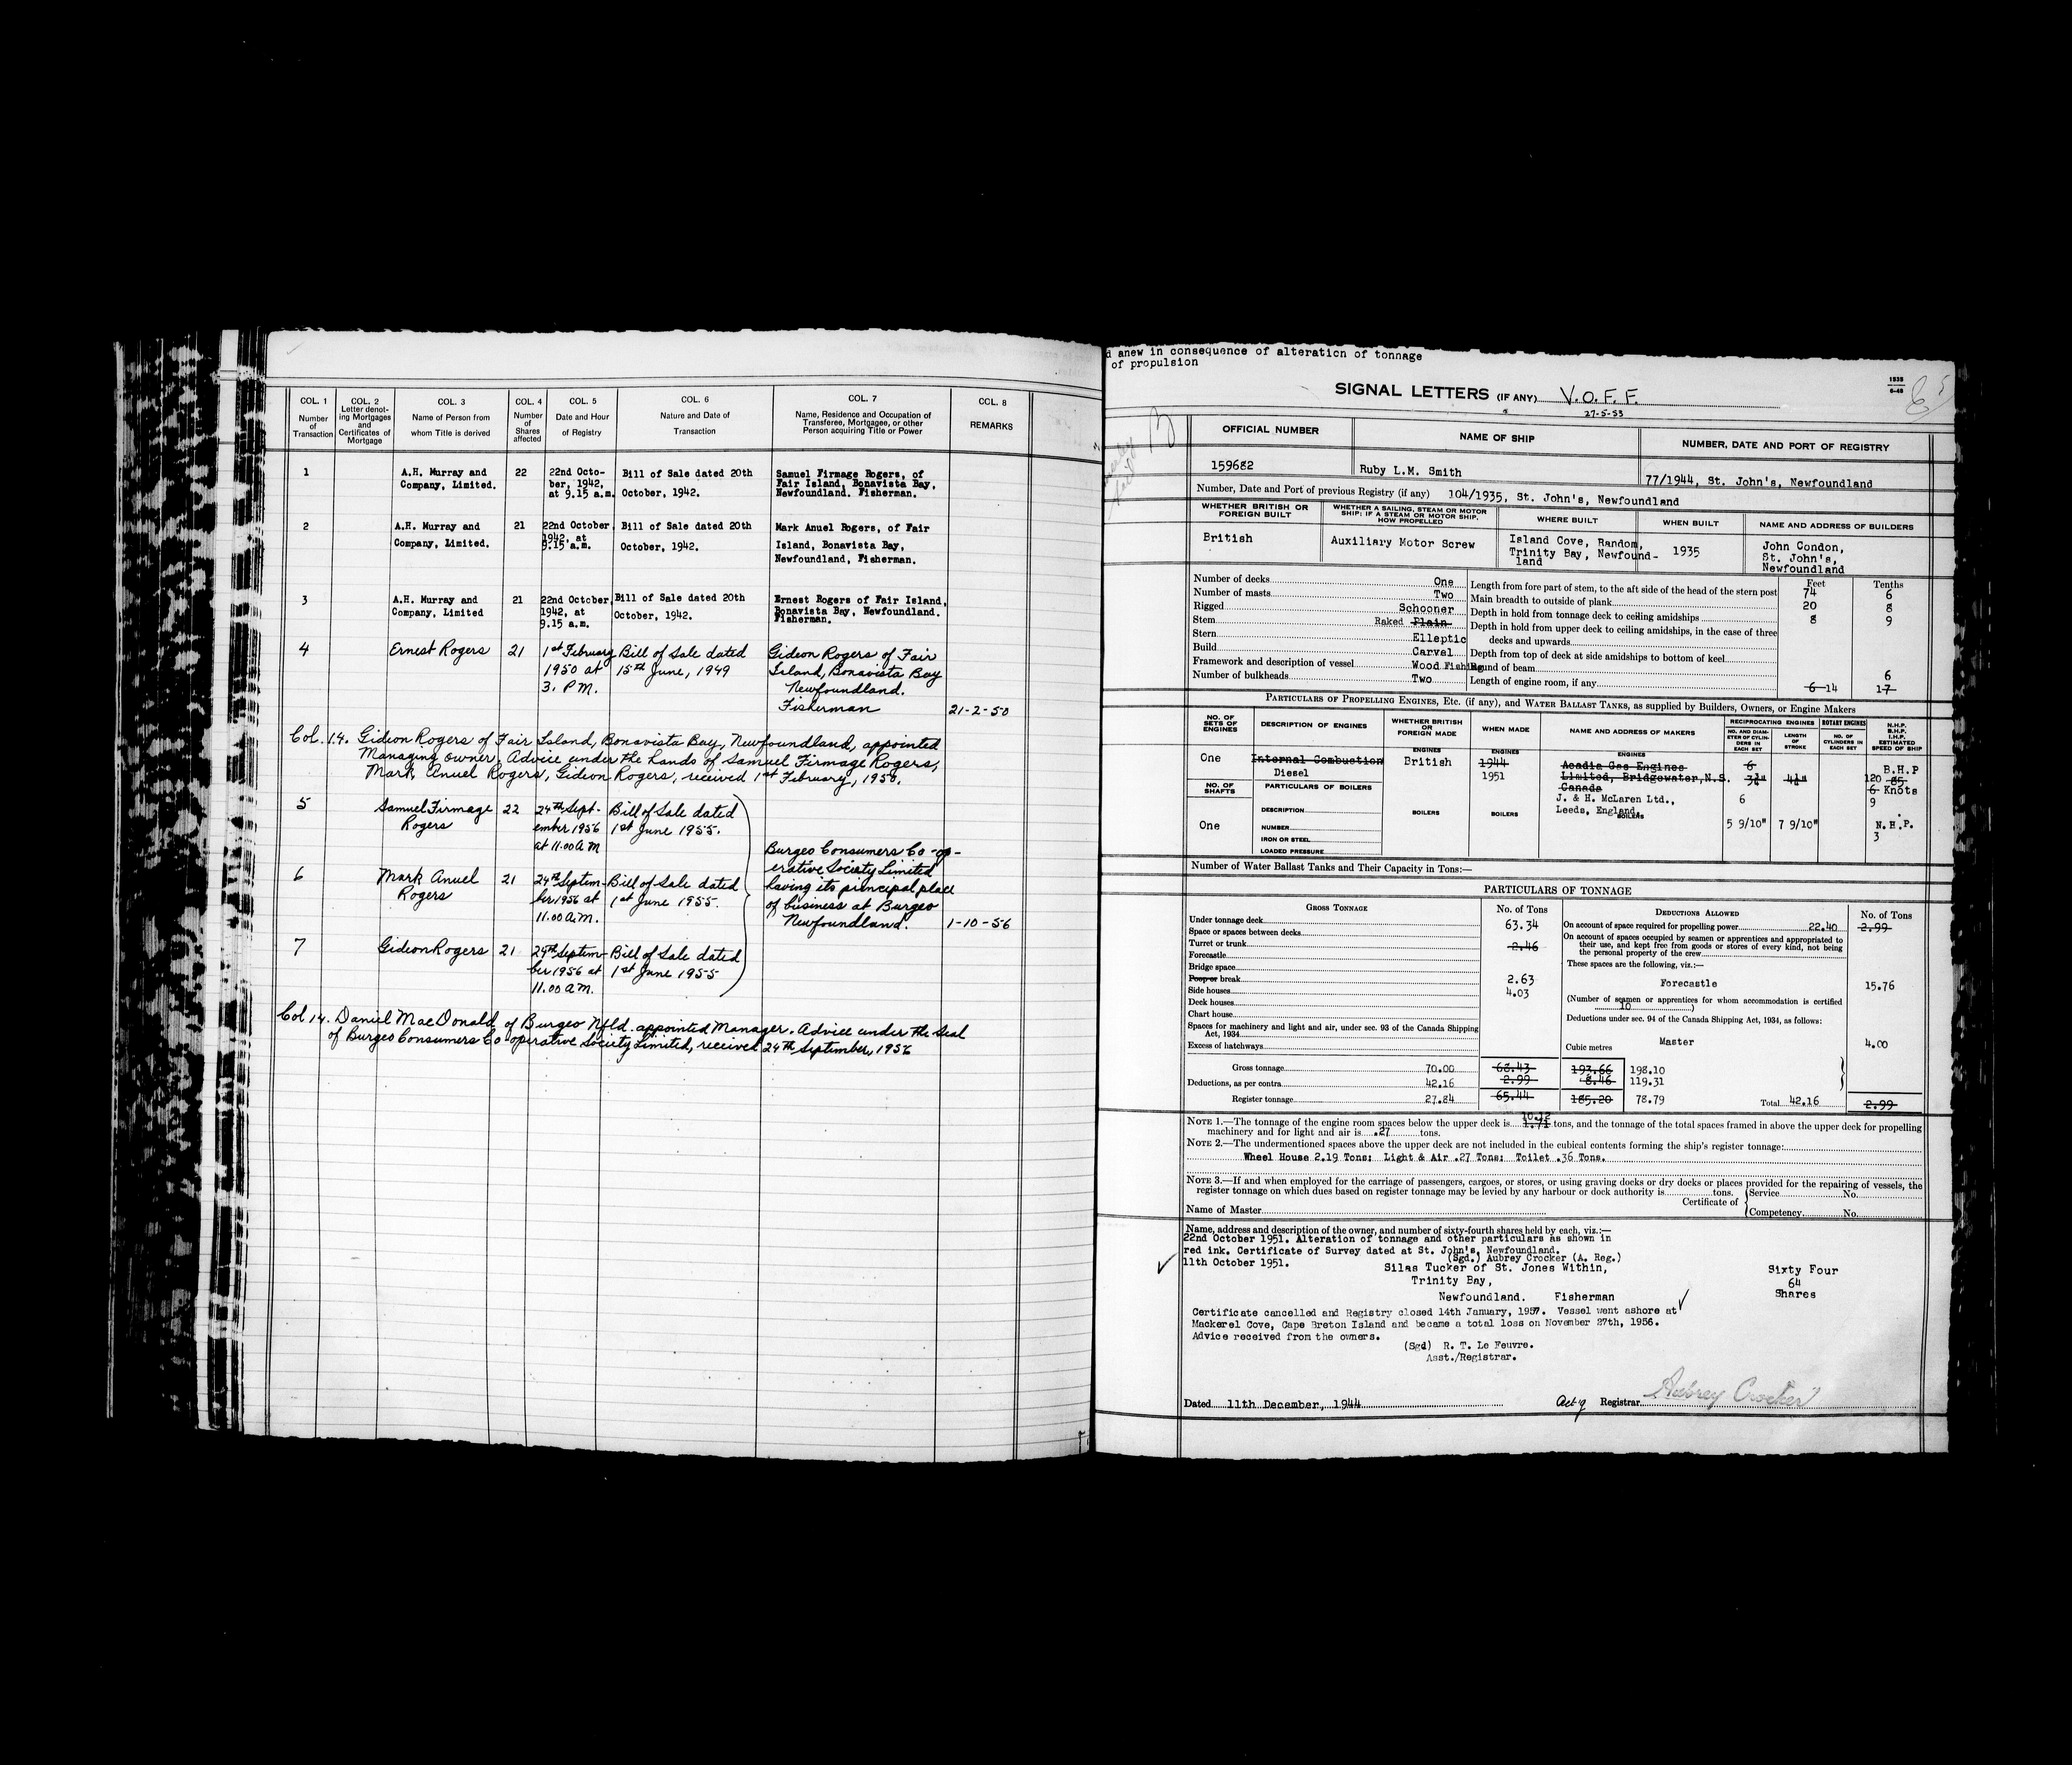 COL. 1 COL. 2 COL. 3 COL. 4 COL. 5 COL. 6 COL. 7 COL. 8
Number of Transaction
Letter denoting Mortgages and Certificates of Mortgage
Name of Person from whom Title is derived
Number of Shares affected
Date and Hour of Registry
Nature and Date of Transaction
Name, Residence and Occupation of Transferee, Mortgagee, or other Person acquiring Title or Power
REMARKS
1 A.H. Murray and Company, Limited. 22 22nd Octo-ber, 1942, at 9.15 a.m. Bill of Sale dated 20th October, 1942. Samuel Firmage Rogers, of Fair Island, Bonavista Bay, Newfoundland. Fisherman.
2 A.H. Murray and Company, Limited. 21 22nd October 1942, at 9.15 a.m. Bill of Sale dated 20th October, 1942. Mark Anuel Rogers, of Fair Island, Bonavista Bay, Newfoundland, Fisherman.
3 A.H. Murray and Company, Limited 21 22nd October, 1942, at 9.15 a.m. Bill of Sale dated 20th October, 1942. Ernest Rogers of Fair Island, Bonavista Bay, Newfoundland. Fisherman.
4 Ernest Rogers 21 1st February 1950 at 3. P.M. Bill of Sale dated 15th June, 1949 Gideon Rogers of Fair Island, Bonavista Bay Newfoundland. Fisherman 21-2-50
Col. 14. Gideon Rogers of Fair Island, Bonavista Bay, Newfoundland, appointed
Managing owner, Advice under the hands of Samuel Firmage Rogers,
Mark, Anuel Rogers, Gideon Rogers, received 1st February, 1950.
5 Samuel Firmage Rogers 22 24th Sept-ember 1956 at 11.00 A M Bill of Sale dated 1st June 1955.
6 Mark Anuel Rogers 21 24th Septem-ber 1956 at 11.00 A.M. Bill of Sale dated 1st June 1955.
Burgeo Consumers Co-op-
erative Society Limited
having its principal place
of business at Burgeo
Newfoundland. 1-10-56
7 Gideon Rogers 21 24th Septem-ber 1956 at 11.00 A M. Bill of Sale dated 1st June 1955
Col 14. Daniel MacDonald of Burgeo Nfld. appointed Manager. Advice under the Seal
of Burgeo Consumers Co operative Society Limited, received 24th September, 1956
d anew in consequence of alteration of tonnage
of propulsion
SIGNAL LETTERS (IF ANY) V.O.F.F.
27-5-53
1935
6-45
OFFICIAL NUMBER NAME OF SHIP NUMBER, DATE AND PORT OF REGISTRY
159682 Ruby L.M. Smith 77/1944, St. John's, Newfoundland
Number, Date and Port of previous Registry (if any) 104/1935, St. John's, Newfoundland
WHETHER BRITISH OR FOREIGN BUILT
WHETHER A SAILING, STEAM OR MOTOR SHIP; IF A STEAM OR MOTOR SHIP, HOW PROPELLED
WHERE BUILT WHEN BUILT NAME AND ADDRESS OF BUILDERS
British Auxiliary Motor Screw Island Cove, Random, Trinity Bay, Newfound-land 1935 John Condon, St. John's, Newfoundland
Feet Tenths
Number of decks One Length from fore part of stem, to the aft side of the head of the stern post 74 6
Number of masts Two Main breadth to outside of plank 20 8
Rigged Schooner Depth in hold from tonnage deck to ceiling amidships 8 9
Stem Raked Plain Depth in hold from upper deck to ceiling amidships, in the case of three
Stern Elleptic decks and upwards
Build Carvel Depth from top of deck at side amidships to bottom of keel
Framework and description of vessel Wood Fishing Round of beam 6
Number of bulkheads Two Length of engine room, if any 6 14 17
PARTICULARS OF PROPELLING ENGINES, ETC. (if any), and WATER BALLAST TANKS, as supplied by Builders, Owners, or Engine Makers
NO. OF SETS OF ENGINES DESCRIPTION OF ENGINES WHETHER BRITISH OR FOREIGN MADE WHEN MADE NAME AND ADDRESS OF MAKERS
RECIPROCATING ENGINES ROTARY ENGINES
NO. AND DIAMETER OF CYLINDERS IN EACH SET LENGTH OF STROKE NO. OF CYLINDERS IN EACH SET
N.H.P. B.H.P. I.H.P. ESTIMATED SPEED OF SHIP
ENGINES ENGINES ENGINES
One Internal Combustion British 1944 Acadia Gas Engines 6 B.H.P
Diesel 1951 Limited, Bridgewater, N.S. 3¾" 4¼" 120 85
Canada 6 Knots
NO. OF SHAFTS PARTICULARS OF BOILERS J. & H. McLaren Ltd., 6 9
DESCRIPTION BOILERS BOILERS Leeds, England. BOILERS
One NUMBER 5 9/10" 7 9/10" N.H.P.
IRON OR STEEL 3
LOADED PRESSURE
Number of Water Ballast Tanks and Their Capacity in Tons:—
PARTICULARS OF TONNAGE
GROSS TONNAGE No. of Tons DEDUCTIONS ALLOWED No. of Tons
Under tonnage deck 63.34 On account of space required for propelling power 22.40 2.99
Space or spaces between decks On account of spaces occupied by seamen or apprentices and appropriated to
Turret or trunk 2.46 their use, and kept free from goods or stores of every kind, not being
Forecastle the personal property of the crew
Bridge space These spaces are the following, viz.:—
Poop or break 2.63 Forecastle 15.76
Side houses 4.03
Deck houses (Number of seamen or apprentices for whom accommodation is certified
Chart house 10 )
Spaces for machinery and light and air, under sec. 93 of the Canada Shipping Act, 1934 Deductions under sec. 94 of the Canada Shipping Act, 1934, as follows:
Excess of hatchways Cubic metres Master 4.00
Gross tonnage 70.00 68.43 193.66 198.10
Deductions, as per contra 42.16 2.99 8.46 119.31
Register tonnage 27.84 65.44 185.20 78.79 Total 42.16 2.99
NOTE 1.—The tonnage of the engine room spaces below the upper deck is 10.12 1.71 tons, and the tonnage of the total spaces framed in above the upper deck for propelling
machinery and for light and air is .27 tons.
NOTE 2.—The undermentioned spaces above the upper deck are not included in the cubical contents forming the ship's register tonnage:
Wheel House 2.19 Tons: Light & Air .27 Tons: Toilet .36 Tons.
NOTE 3.—If and when employed for the carriage of passengers, cargoes, or stores, or using graving docks or dry docks or places provided for the repairing of vessels, the
register tonnage on which dues based on register tonnage may be levied by any harbour or dock authority is tons.
Certificate of Service No.
Name of Master Competency No.
Name, address and description of the owner, and number of sixty-fourth shares held by each, viz.:—
22nd October 1951. Alteration of tonnage and other particulars as shown in
red ink. Certificate of Survey dated at St. John's, Newfoundland.
11th October 1951. (Sgd.) Aubrey Crocker (A. Reg.)
Silas Tucker of St. Jones Within, Sixty Four
Trinity Bay, 64
Newfoundland. Fisherman Shares
Certificate cancelled and Registry closed 14th January, 1957. Vessel went ashore at
Mackerel Cove, Cape Breton Island and became a total loss on November 27th, 1956.
Advice received from the owners.
(Sgd) R. T. Le Feuvre.
Asst./Registrar.
Dated 11th December, 1944 Act'g Registrar Aubrey Crocker